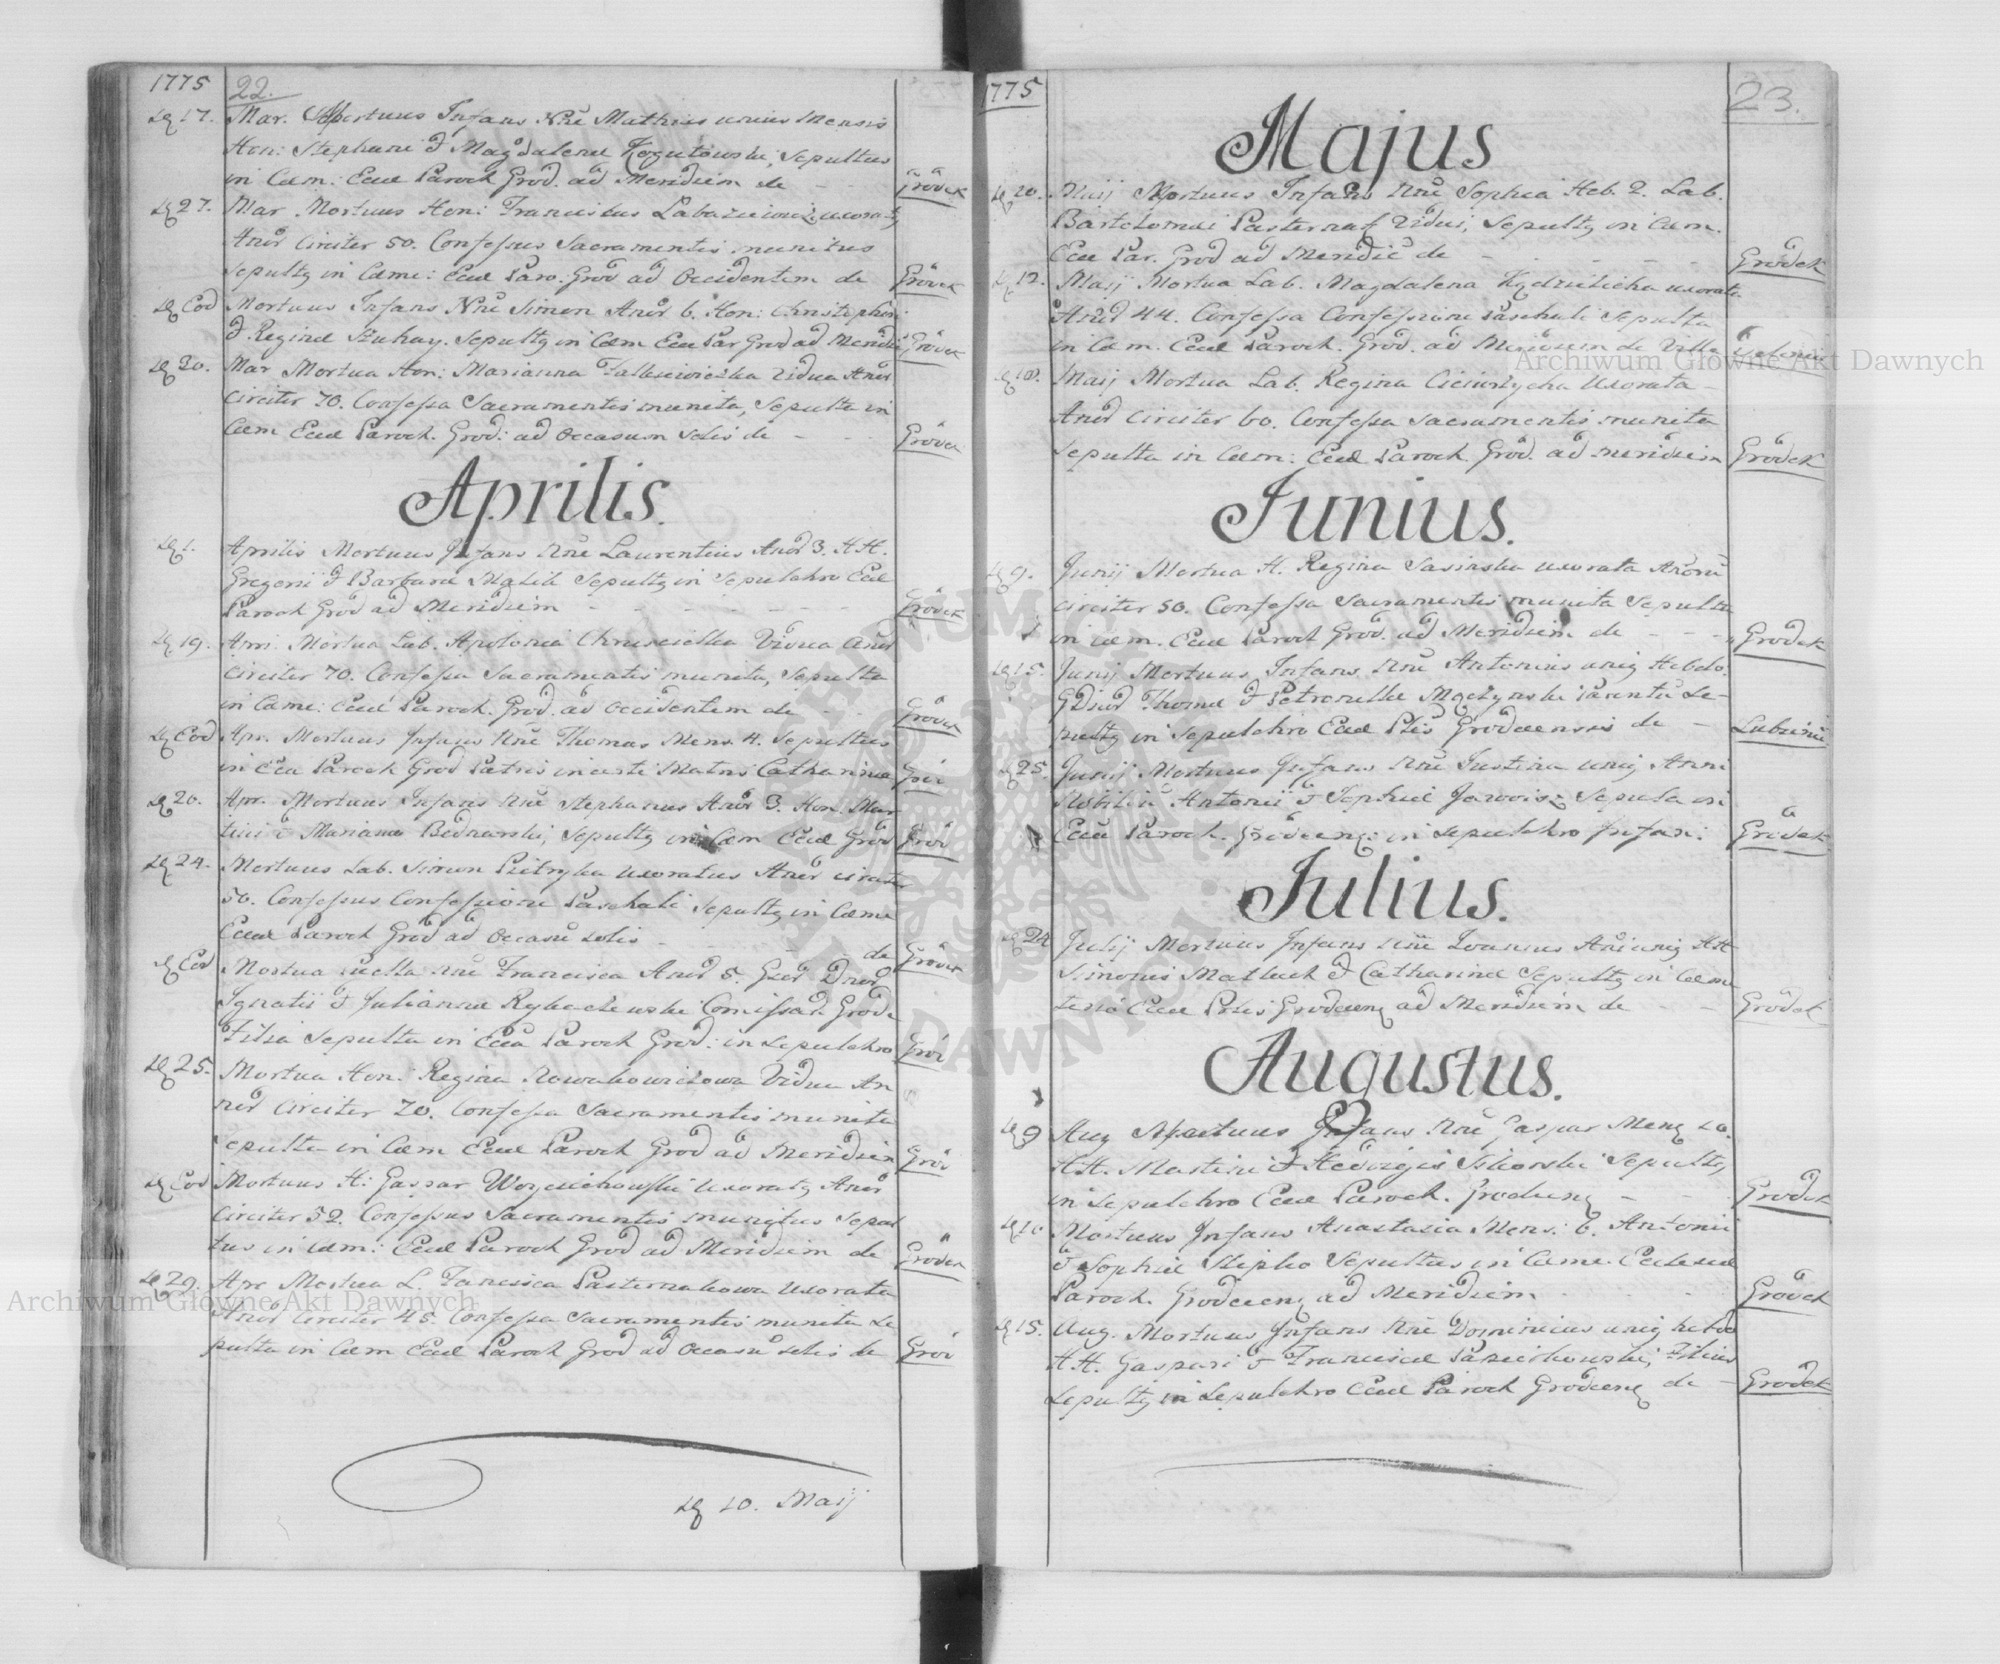 1775 22.
17. Mar. Mortuus Infans Nñe Mathias unius Mensis
Hon: Stephani & Magdalena Kogutowski, Sepultus
in Cæm: Eccæ Paroch Grod. ad Meridiem de - - Grodek
27. Mar Mortuus Hon: Franciscus uxoratq
Anor Circiter 50. Confessus Sacramentis munitus
Sepultq in Cæme: Eccæ Paro: Grod ad Occidentem de Grodek
Eod Mortuus Infans Nñe Simon Anor 6. Hon: Christophori
& Regina Sepultq in Cæm Eccæ Par Grod ad Meridie Grodek
30. Mar Mortua Hon: Marianna Vidua Anor
Circiter 70. Confessa Sacramentis munita, Sepulta in
Cæm Eccæ Paroch. Grod: ad Occasum Solis de - - Grodek
Aprilis.
1. Aprilis Mortuus Infans Nñe Laurentius Anor 3. H.H.
Gregorii & Barbara Sepultq in Sepulchro Eccæ
Paroch Grod ad Meridiem - - - - - - Grodek
19. Apri. Mortua Lab. Apolonia Vidua Anor
Circiter 70. Confessa Sacramentis munita, Sepulta
in Cæme: Eccæ Paroch. Grod. ad Occidentem de - - Grodek
Eod Apr. Mortuus Infans Nñe Thomas Mens. 4. Sepultus
in Ecca Paroch Grod Patris incerti Matris Catharina Gro
20. Apr. Mortuus Infans Nñe Stephanus Anor 3. Hon. Mar
tini & Marianna Bednarski, Sepultq in Cæm Eccæ Grod Grod
24. Mortuus Lab. Simon Pietryka uxoratus Anor circiter
50. Confessus Confessione Paschali Sepultq in Cæme
Eccæ Paroch Grod ad Occasu Solis - - - de Grodek
Eod Mortua Puella Nñe Francisca Anor 5. Gnor Dnor
Ignatii & Julianna Comissar. Grod.
Filia Sepulta in Ecca Paroch Grod: in Sepulchro Grod
25. Mortua Hon: Regina Nowakowiczowa Vidua An
nor Circiter 70. Confessa Sacramentis munita
Sepulta in Cæm Eccæ Paroch Grod ad Meridiem Grod
Eod Mortuus H: Gaspar Woyciechowski uxoratq Anor
Circiter 52. Confessus Sacramentis munitus Sepul
tus in Cæm: Eccæ Paroch Grod ad Meridiem de Grodek
29. Apr Mortua L. Francisca Pasternakowa uxorata
Anor Circiter 45. Confessa Sacramentis munita Se
pulta in Cæm Eccæ Paroch Grod ad Occasu Solis de Grod
10. Maij
1775 23.
Majus
20. Maij Mortuus Infans Nñe Sophia Heb. 2. Lab.
Bartolomæi Pasternak Vidui, Sepultq in Cæm.
Eccæ Par. Grod ad Meridie de - - - - Grodek
12. Maij Mortua Lab. Magdalena uxorata
Anor 44. Confessa Confessione Paschali Sepulta
in Cæm. Eccæ Paroch. Grod. ad Meridiem de Villa
Maij Mortua Lab. Regina uxorata -
Anor Circiter 60. Confessa Sacramentis munita
Sepulta in Cæm: Eccæ Paroch Grod. ad meridiem Grodek
Junius.
9. Junij Mortua H. Regina Sasinska uxorata Anorũ
circiter 50. Confessa Sacramentis munita Sepulta
in Cæm. Eccæ Paroch Grod. ad Meridiem de - - - Grodek
15. Junij Mortuus Infans Nñe Antonius uniq Hebdo:
GDnor Thoma & Petronella Mączynski Parentũ Se-
pultq in Sepulchro Eccæ Plis Grodecensis de - Lubinie
25. Junij Mortuus Infans Nñe Justina uniq Anni
Nobiliũ Antonii & Sophia Sepulta in
Ecca Paroch. Grodecenq: in Sepulchro Infan: Grodek
Julius.
24 Julij Mortuus Infans Nñe Ioannes Ani uniq HH
Simonis & Catharina Sepultq in Cæme
terio Eccæ Plis Grodecenq ad Meridiem de - - Grodek
Augustus.
9 Aug Mortuus Infans Nñe Gaspar Menq 10.
H.H. Martini & Hedvigis Sikorski Sepultq
in Sepulchro Eccæ Paroch. Grodecenq - - - Grodek
10 Mortuus Infans Anastasia Mens: 6. Antonii
& Sophia Sepultus in Cæme. Ecclesiæ
Paroch. Grodecenq ad Meridiem - - - Grodek
15. Aug. Mortuus Infans Nñe Dominicus uniq hebdo
H.H. Gaspari & Francisca Filius
Sepultq in Sepulchro Eccæ Paroch Grodecenq de - Grodek
Archiwum Główne Akt Dawnych
Archiwum Główne Akt Dawnych
ARCHIWUM GŁÓWNE AKT DAWNYCH